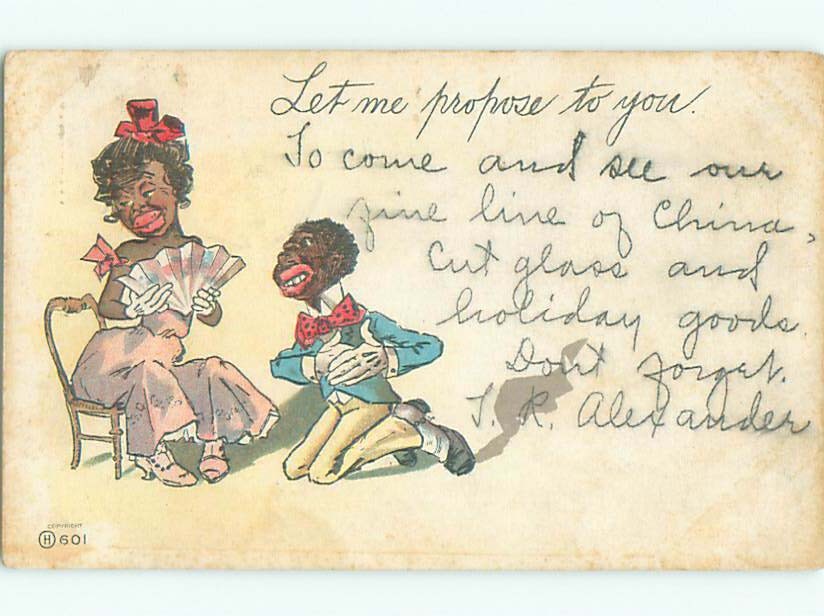 Let me propose to you.
To come and see our
fine line of China,
Cut glass and
holiday goods.
Dont forget.
T. R. Alexander
COPYRIGHT
H 601